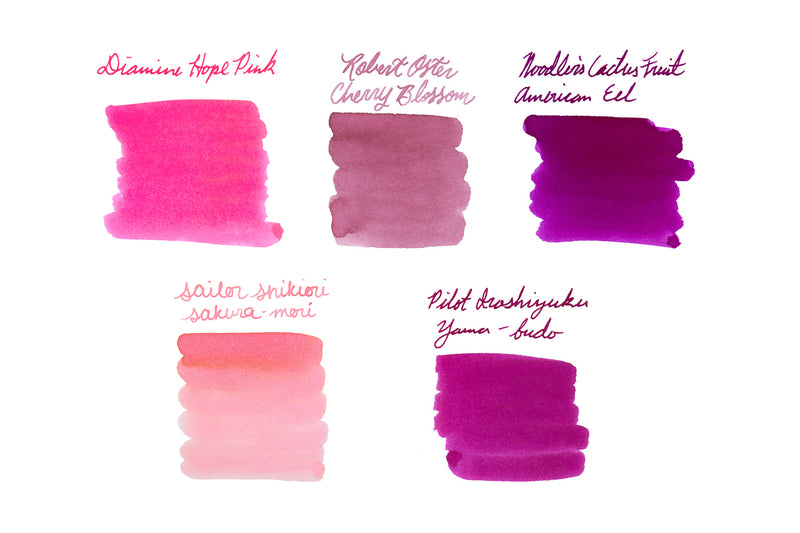 Diamine Hope Pink
Robert Oster
Cherry Blossom
Noodler's Cactus Fruit
American Eel
sailor shikiori
sakura-mori
Pilot Iroshizuku
Yama-budo